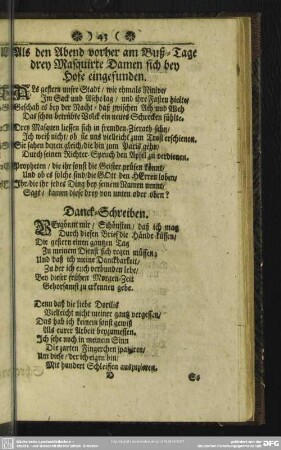 43
Als den Abend vorher am Buß-Tage
drey Masquirte Damen sich bey
Hofe eingefunden.
Als gestern unser Stadt / wie ehmals Ninive /
Im Sack und Asche lag / und ihre Fasten hielte /
Geschah es bey der Nacht / daß zwischen Ach und Weh
Das schon betrübte Volck ein neues Schrecken fühlte.
Drey Masquen liessen sich in fremden Zierath sehn /
Ich weiß nicht / ob sie uns vielleicht zum Trost erschienen.
Sie sahen denen gleich / die din zum Paris gehn /
Durch seinen Richter-Spruch den Apfel zu verdienen.
Propheten / die ihr sonst die Geister prüfen könnt /
Und ob es solche sind / die GOtt den HErren loben /
Ihr / die ihr jedes Ding bey jemem Namen nennt /
Sagt / kamen diese drey von unten oder oben?
Danck-Schreiben.
Vergönnt mir / Schönsten / daß ich mag
Durch diesen Brief die Hände küssen /
Die gestern einen gantzen Tag
Zu meinem Dienst sich regen müssen;
Und daß ich meine Danckbarkeit /
Zu der ich euch verbunden lebe /
Bey dieser frühen Morgen-Zeit
Gehorsamst zu erkennen gebe.
Denn daß die liebe Dorilis
Vielleicht nicht meiner gantz vergessen /
Das hab ich keinem sonst gewiß
Als eurer Arbeit beyzumessen.
Ich sehe noch in meinem Sinn
Die zarten Fingerchen spatziren /
Um diese / der ich eigen bin /
Mit hundert Schleiffen auszuzieren.
D
Es